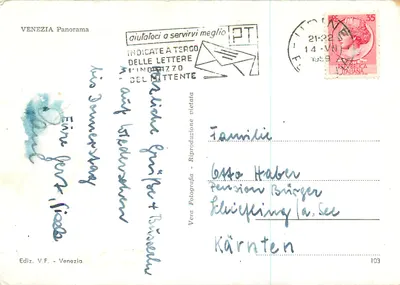 VENEZIA Panorama
aiutateci a servirvi meglio
INDICATE A TERGO
DELLE LETTERE
L'INDIRIZZO
DEL MITTENTE
PT
21-22
14-VII
1959
35
Herzliche Grüße + Busserln
u. auf Wiedersehen
bis Donnerstag
Eure Gert,
Vera Fotografia - Riproduzione vietata
Familie
Otto Haber
Pension Bürger
Schiefling a. See
Kärnten
Ediz. V.F. - Venezia
103